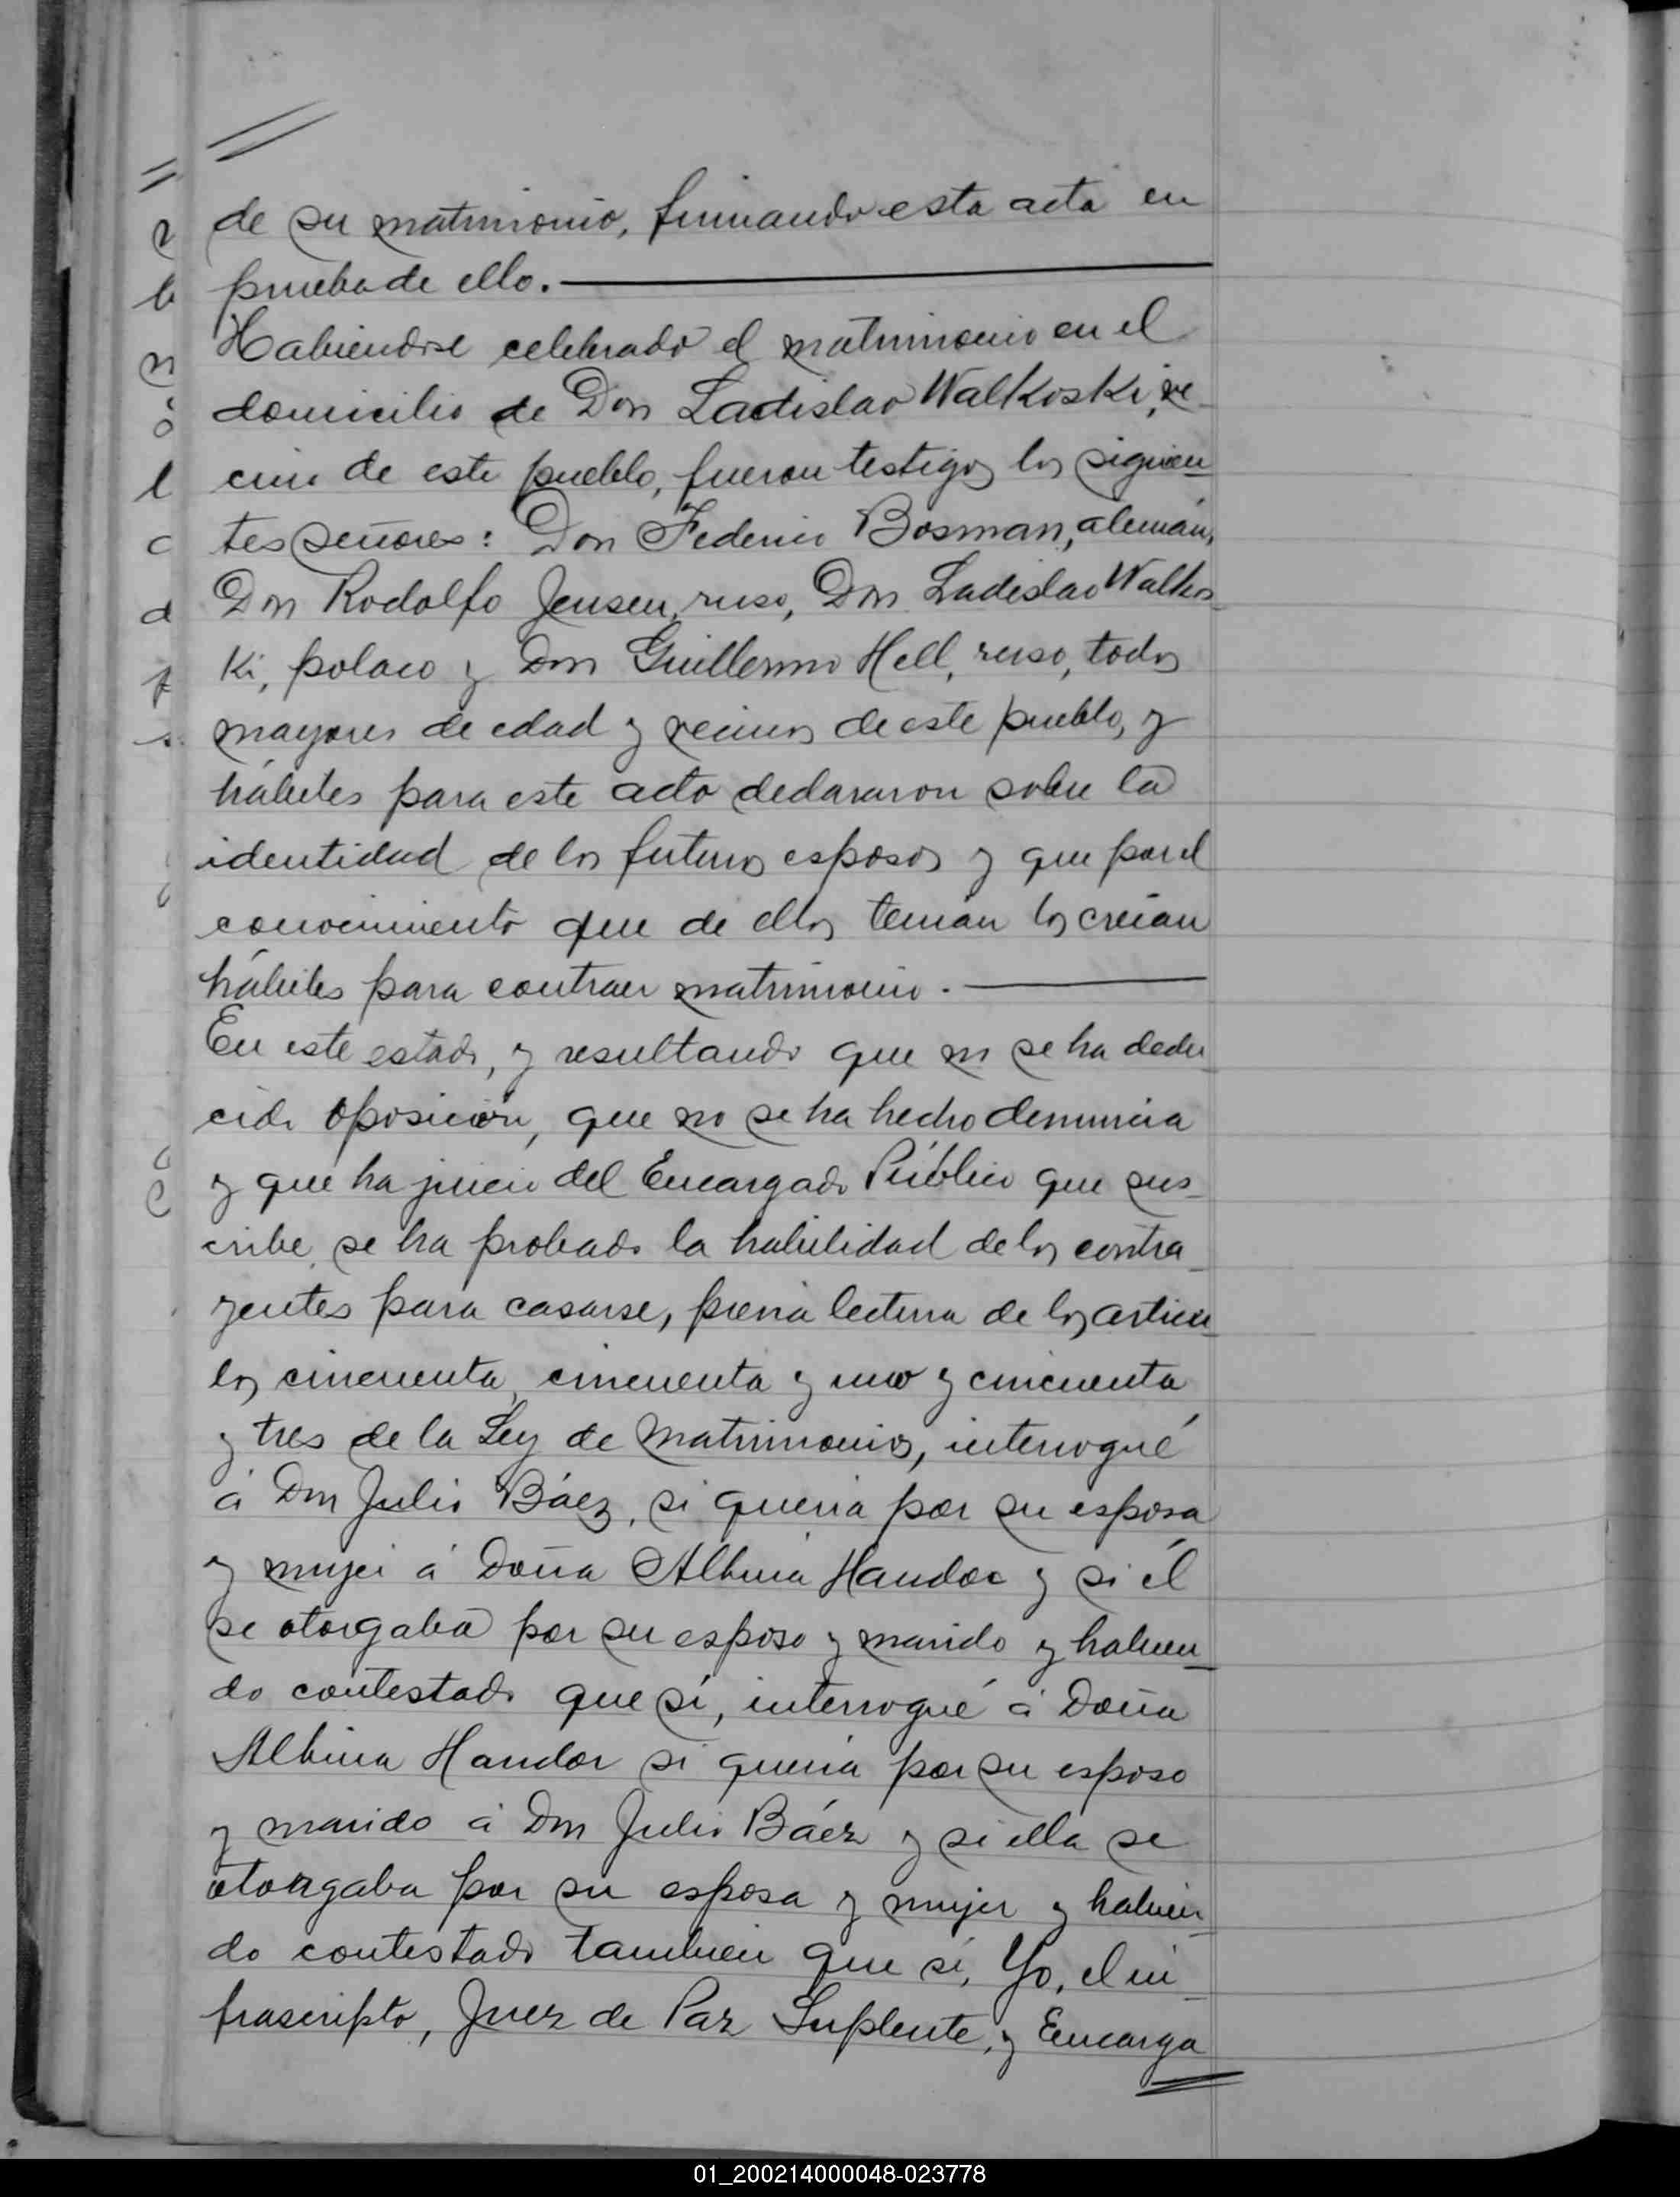 de su matrimonio, firmando esta acta en
prueba de ello.
Habiendose celebrado el matrimonio en el
domicilio de Don Ladislao Walkoski, ve_
cino de este pueblo, fueron testigos los siguien_
tes señores: Don Federico Bosman, alemán,
Don Rodolfo Jensen, ruso, Don Ladislao Walkos_
Ki, polaco y Don Guillermo Hell, ruso, todos
mayores de edad y vecinos de este pueblo, y
hábiles para este acto declararon sobre la
identidad de los futuros esposos y que por el
conocimiento que de ellos tenían los creían
hábiles para contraer matrimonio.
En este estado, y resultando que no se ha dedu_
cido oposición, que no se ha hecho denuncia
y que ha juicio del Encargado Público que sus_
cribe, se ha probado la habilidad de los contra_
yentes para casarse, previa lectura de los articu_
los cincuenta, cincuenta y uno y cincuenta
y tres de la Ley de Matrimonios, interrogué
á Don Julio Báez, si queria por su esposa
y mujer á Doña Albina Handor y si él
se otorgaba por su esposo y marido y habien_
do contestado que sí, interrogué á Doña
Albina Handor si queria por su esposo
y marido á Don Julio Báez y si ella se
otorgaba por su esposa y mujer y habien_
do contestado tambien que sí, Yo, el in_
frascripto, Juez de Paz Suplente, y Encarga
01_200214000048-023778